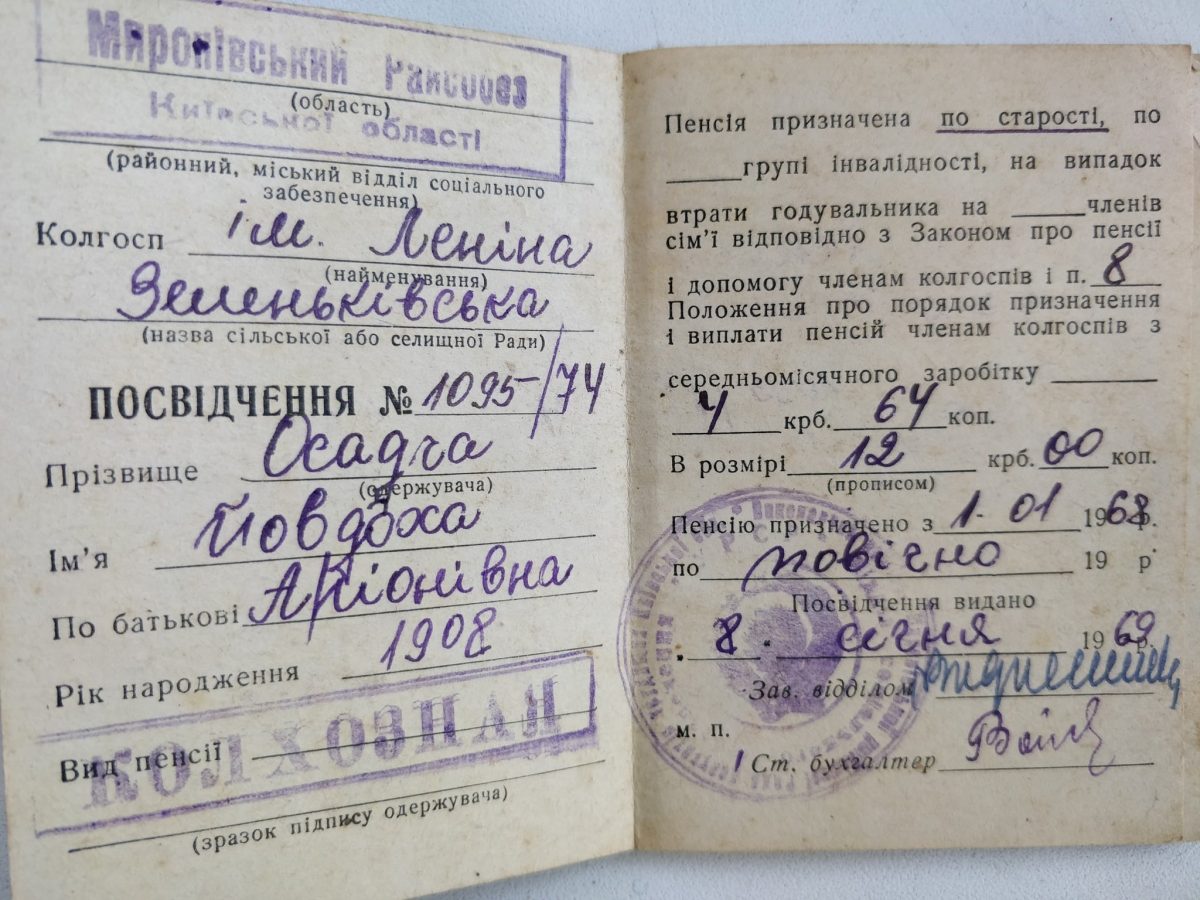 Миронівський Райсобез
(область)
Київської області
(районний, міський відділ соціального
забезпечення)
Колгосп ім. Леніна
(найменування)
Зеленьківська
(назва сільської або селищної Ради)
ПОСВІДЧЕННЯ № 1095/74
Прізвище Осадча
(одержувача)
Ім'я Йовдоха
По батькові Аріонівна
Рік народження 1908
КОЛХОЗНАЯ
Вид пенсії
(зразок підпису одержувача)
Пенсія призначена по старості, по
групі інвалідності, на випадок
втрати годувальника на членів
сім'ї відповідно з Законом про пенсії
і допомогу членам колгоспів і п. 8
Положення про порядок призначення
і виплати пенсій членам колгоспів з
середньомісячного заробітку
4 крб. 64 коп.
В розмірі 12 крб. 00 коп.
(прописом)
Пенсію призначено з 1.01 1968 р.
по повічно 19 р
Посвідчення видано
„8" січня 1969 р.
Зав. відділом
м. п.
Ст. бухгалтер